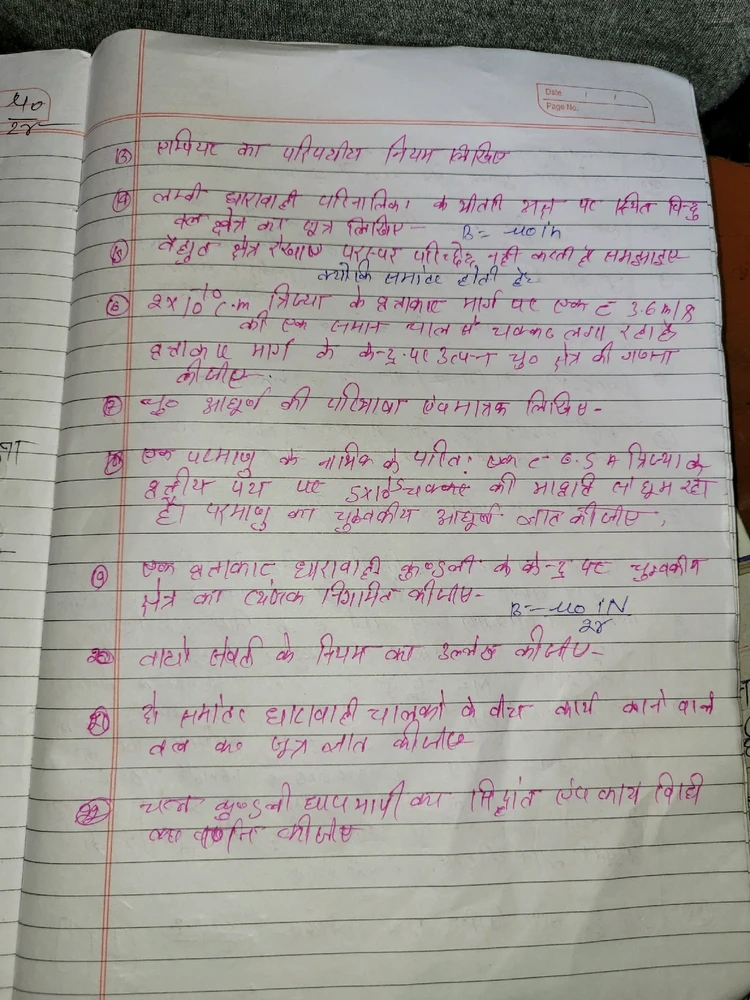 μ0
2r
Date
Page No.
13 एम्पियर का परिपथीय नियम लिखिए
14 लम्बी धारावाही परिनालिका के भीतरी अक्ष पर स्थित बिन्दु
क्षेत्र का सूत्र लिखिए - B = μ0in
15 वैद्युत क्षेत्र रेखाएं परस्पर परिच्छेद नही करती है समझाइए
क्योंकि समांतर होती है
16 2×10⁻¹⁰ c.m त्रिज्या के वृत्ताकार मार्ग पर एक e 3.6 m/s
की एक समान चाल से चक्कर लगा रहा है
वृत्ताकार मार्ग के केन्द्र पर उत्पन्न चु० क्षेत्र की गणना
कीजीए.
17 चु० आघूर्ण की परिभाषा एवं मात्रक लिखिए -
18 एक परमाणु के नाभिक के परितः एक e 0.5 A त्रिज्या के
वृत्तीय पथ पर चक्कर की से घूम रहा
है। परमाणु का चुम्बकीय आघूर्ण ज्ञात कीजीए,
19 एक वृत्ताकार धारावाही कुण्डली के केन्द्र पर चुम्बकीय
क्षेत्र का व्यंजक निगमित कीजीए -
B = μ0 iN
2r
20 वायो सेवर्ट के नियम का उल्लेख कीजीए -
21 दो समांतर धारावाही चालको के बीच कार्य करने वाले
बल का सूत्र ज्ञात कीजीए
22 चल कुण्डली धारामापी का सिद्धांत एवं कार्य विधी
का वर्णन कीजीए